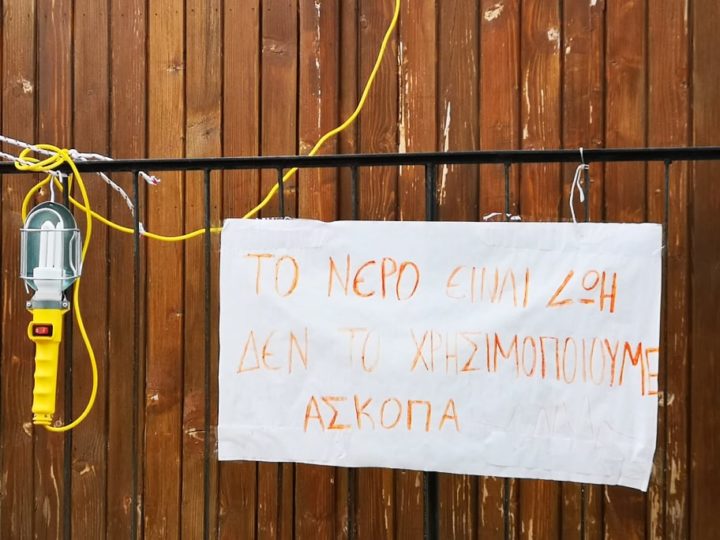 ΤΟ ΝΕΡΟ ΕΙΝΑΙ ΖΩΗ
ΔΕΝ ΤΟ ΧΡΗΣΙΜΟΠΟΙΟΥΜΕ
ΑΣΚΟΠΑ